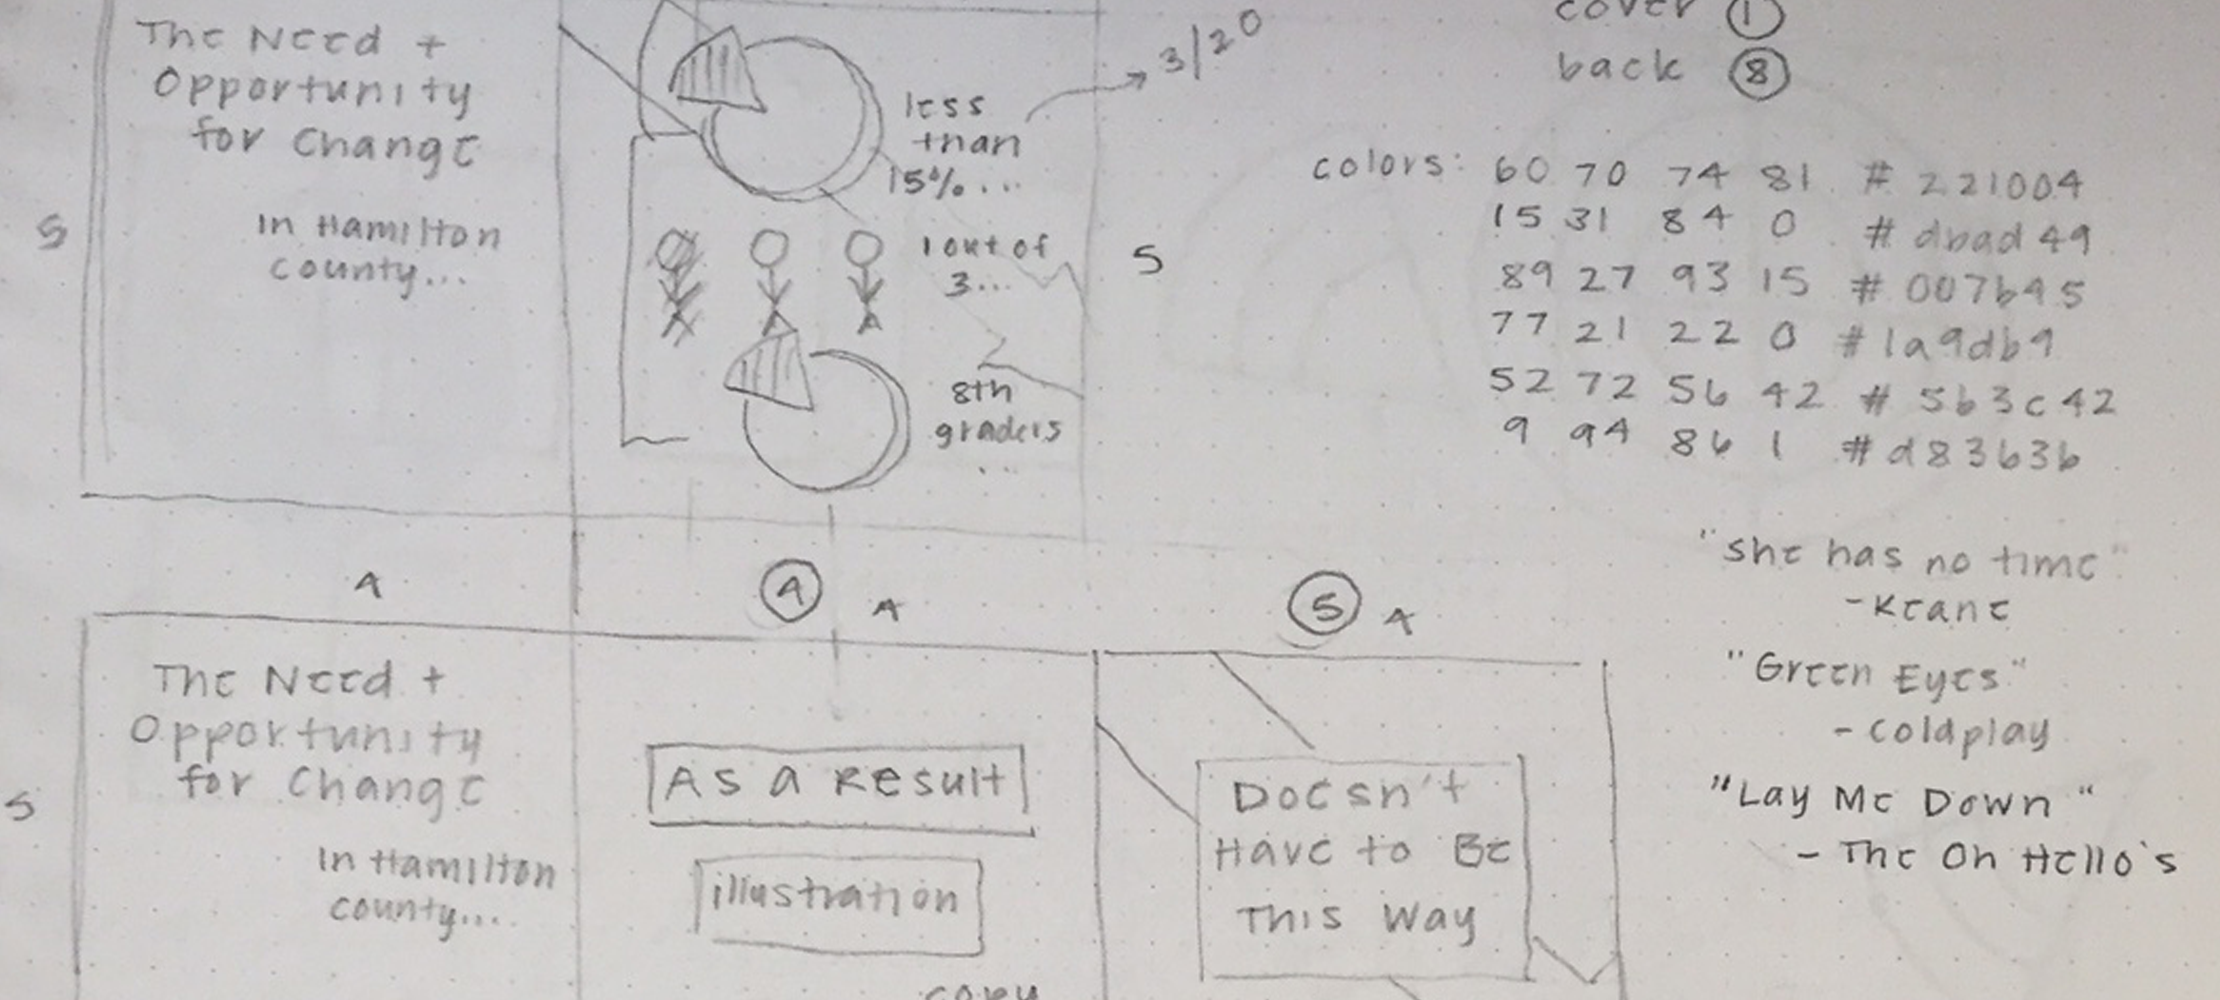 The Need +
Opportunity
for Change
In Hamilton
county...
less
than
15%...
3/20
1 out of
3...
8th
graders
...
5
5
cover 1
back 8
colors: 60 70 74 81 #221004
15 31 84 0 #dbad49
89 27 93 15 #007b45
77 21 22 0 #1a9db9
52 72 56 42 #5b3c42
9 94 86 1 #d83b3b
"She has no time"
-Keane
"Green Eyes"
-Coldplay
"Lay Me Down"
- The Oh Hello's
4
4
4
5
4
5
The Need +
Opportunity
for Change
In Hamilton
county...
As a Result
illustration
copy
Doesn't
Have to Be
This Way